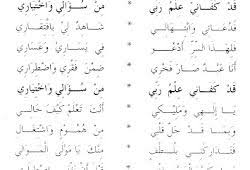 قَدْ كَفَانِي عِلْمُ رَبِّي * مِنْ سُؤَالِي وَاخْتِيَارِي
فَدُعَائِي وَابْتِهَالِي * شَاهِدٌ لِي بِافْتِقَارِي
فَلِهَذَا السِّرِّ أَدْعُو * فِي يَسَارِي وَعَسَارِي
أَنَا عَبْدٌ صَارَ فَخْرِي * ضِمْنَ فَقْرِي وَاضْطِرَارِي
قَدْ كَفَانِي عِلْمُ رَبِّي * مِنْ سُؤَالِي وَاخْتِيَارِي
يَا إِلَهِي وَمَلِيكِي * أَنْتَ تَعْلَمُ كَيْفَ حَالِي
وَبِمَا قَدْ حَلَّ قَلْبِي * مِنْ هُمُومٍ وَاشْتِغَالِ
فَتَدَارَكْنِي بِلُطْفٍ * مِنْكَ يَا مَوْلَى الْمَوَالِي